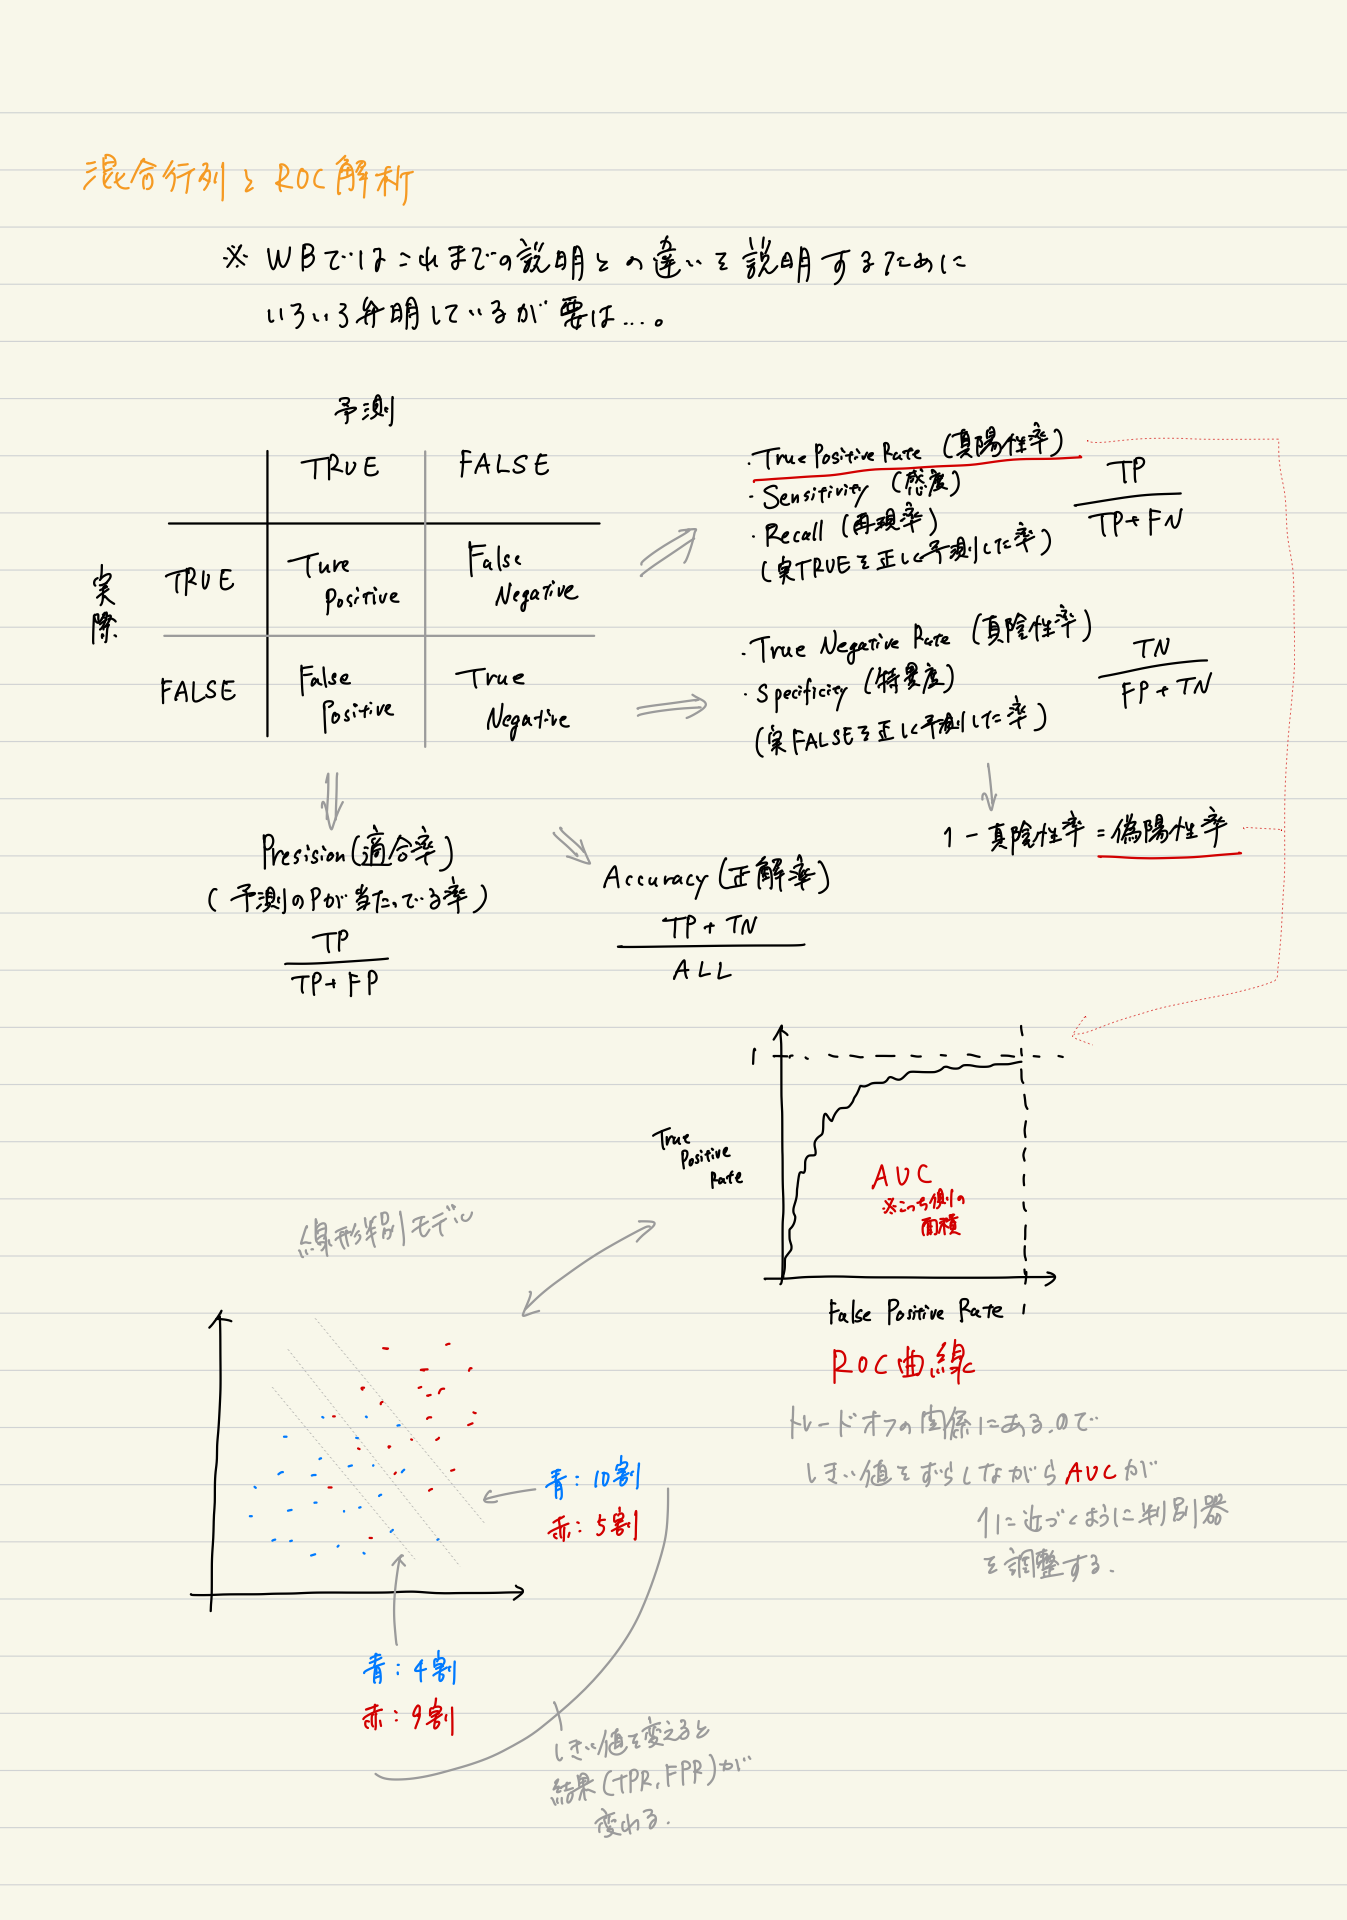 混合行列と ROC解析
※ WBではこれまでの説明との違いを説明するために
いろいろ弁明しているが要は…。
予測
TRUE FALSE
実際
TRUE Ture Positive False Negative
FALSE False Positive True Negative
・True Positive Rate (真陽性率)
・Sensitivity (感度)
・Recall (再現率)
(実TRUEを正しく予測した率)
TP
TP+FN
・True Negative Rate (真陰性率)
・Specificity (特異度)
(実FALSEを正しく予測した率)
TN
FP+TN
1-真陰性率=偽陽性率
Presision(適合率)
(予測のPが当たってる率)
TP
TP+FP
Accuracy(正解率)
TP+TN
ALL
1
True
Positive
Rate
AUC
※こっち側の
面積
False Positive Rate
ROC曲線
トレードオフの関係にあるので
しきい値をずらしながらAUCが
1に近づくように判別器
を調整する.
線形判別モデル
青:10割
赤:5割
青:4割
赤:9割
しきい値を変えると
結果(TPR,FPR)が
変わる.